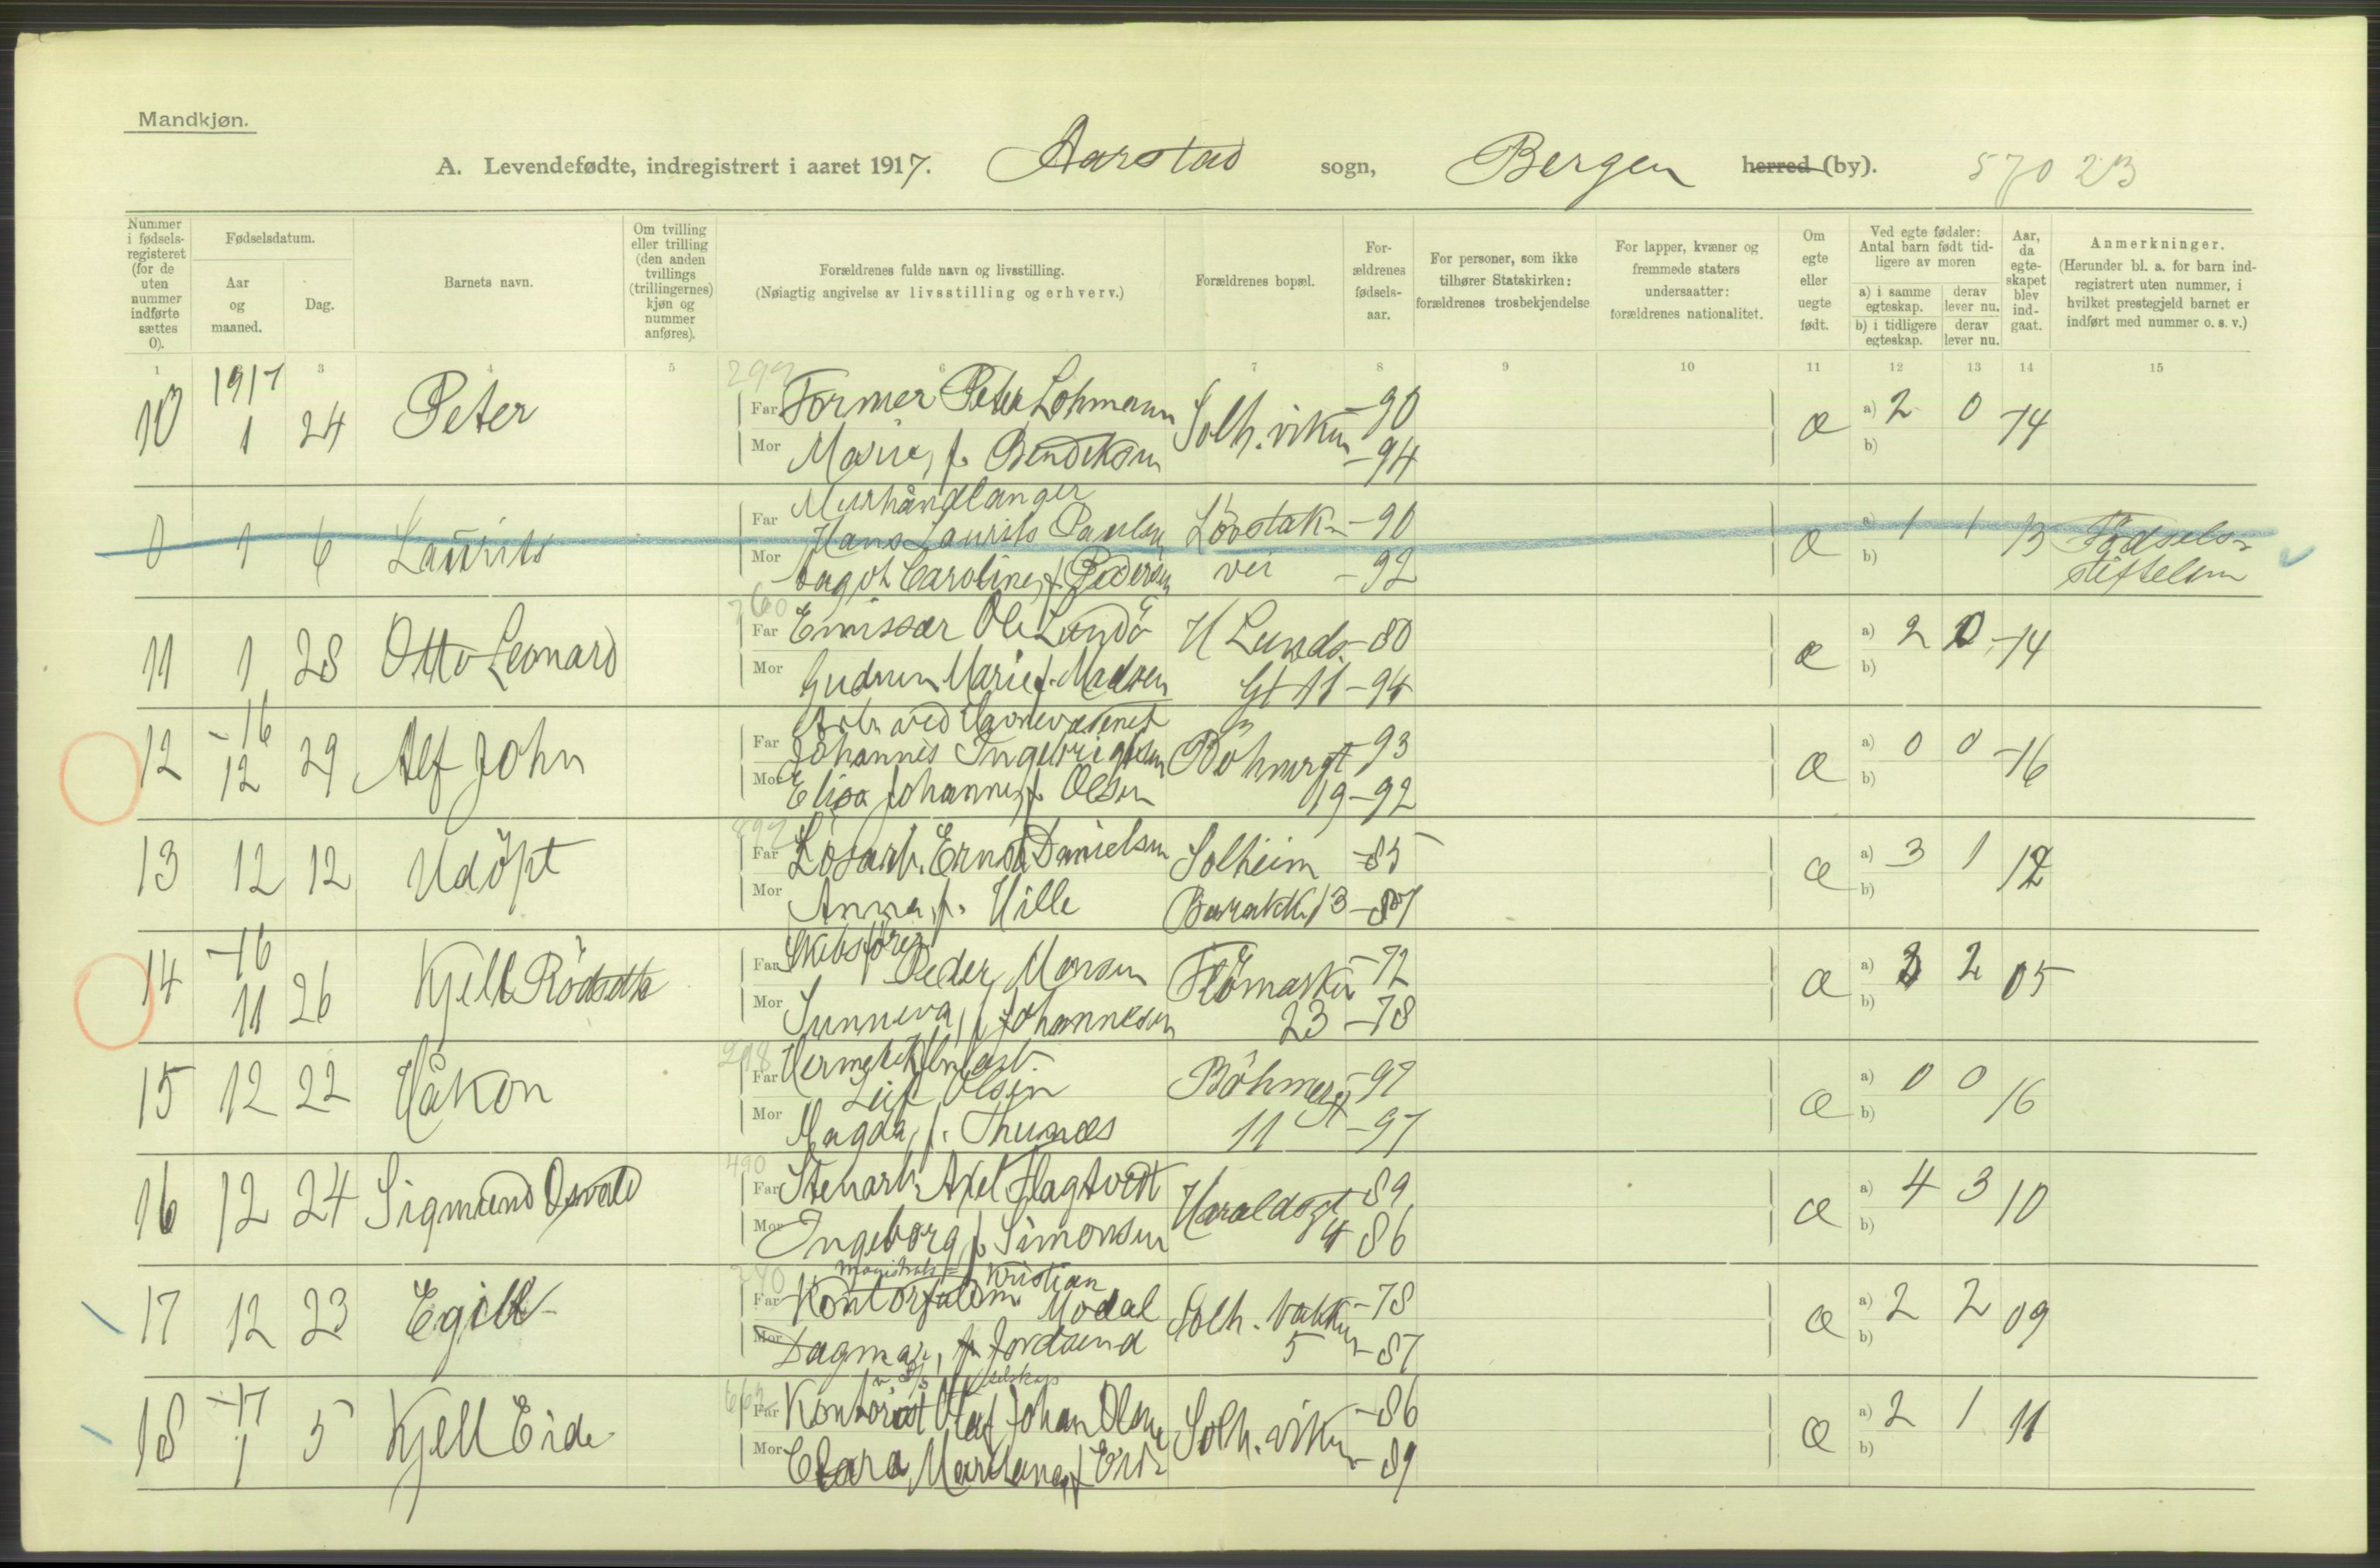 Mandkjøn.
A. Levendefødte, indregistrert i aaret 1917. Aarstad sogn, Bergen herred (by). 570 23
Nummer i fødsels-registeret (for de uten nummer indførte sættes 0).
Fødselsdatum.
Aar og maaned.
Dag.
Barnets navn.
Om tvilling eller trilling (den anden tvillings (trillingernes) kjøn og nummer anføres).
Forældrenes fulde navn og livsstilling.
(Nøiagtig angivelse av livsstilling og erhverv.)
Forældrenes bopæl.
For-ældrenes fødsels-aar.
For personer, som ikke tilhører Statskirken: forældrenes trosbekjendelse
For lapper, kvæner og fremmede staters undersaatter: forældrenes nationalitet.
Om egte eller uegte født.
Ved egte fødsler: Antal barn født tid-ligere av moren
a) i samme egteskap. derav lever nu.
b) i tidligere egteskap. derav lever nu.
Aar, da egte-skapet blev ind-gaat.
Anmerkninger.
(Herunder bl. a. for barn ind-registrert uten nummer, i hvilket prestegjeld barnet er indført med nummer o. s. v.)
1 3 4 5 6 7 8 9 10 11 12 13 14 15
1917 299
10 1 24 Peter Far Former Peter Lohmann Solh.viken -90 æ a) 2 0 -14
Mor Marie, f. Bendiksen -94 b)
Murhåndlanger
0 1 6 Laurits Far Hans Laurits Paulsen Lövstak- -90 æ a) 1 1 13 Fødsels-
Mor Dagot Caroline, f. Pedersen vei -92 b) stiftelsen
760
11 1 28 Otto Leonard Far Emissær Ole Lundö H Lunds- -80 æ a) 2 0 -14
Mor Gudrun Marie f. Madsen Gt 11 -94 b)
-16 Arb. ved Havnevæsenet
12 12 29 Alf John Far Johannes Ingebrigtsen Böhmergt -93 æ a) 0 0 -16
Mor Elisa Johanne, f. Olsen 19 -92 b)
892
13 12 12 Udöpt Far Lösarb. Ernst Danielsen Solheim -85 æ a) 3 1 12
Mor Anna, f. Hille Barakk. 13 -87 b)
-16 Skibsförer
14 11 26 Kjell Rödseth Far Peder Monsen Flömarken -72 æ a) 3 2 05
Mor Sunneva, f. Johannesen 23 -78 b)
Hermetikfabr.arb.
15 12 22 Håkon Far Leif Olsen Böhmergt -97 æ a) 0 0 16
Mor Magda, f. Thunes 11 -97 b)
490
16 12 24 Sigmund Osvald Far Stenarb. Axel Hagtvedt Haraldsgt 89 æ a) 4 3 10
Mor Ingeborg, f. Simonsen 4 86 b)
magistrats= Kristian
17 12 23 Egill Far Kontorfuldm. Modal Solh. bakken -78 æ a) 2 2 09
Mor Dagmar, f. Jordsund 5 -87 b)
-17 selskap
18 1 5 Kjell Eide Far Kontorist Olaf Johan Olsen Solh.viken -86 æ a) 2 1 11
Mor Clara Mariane, f. Eide -89 b)